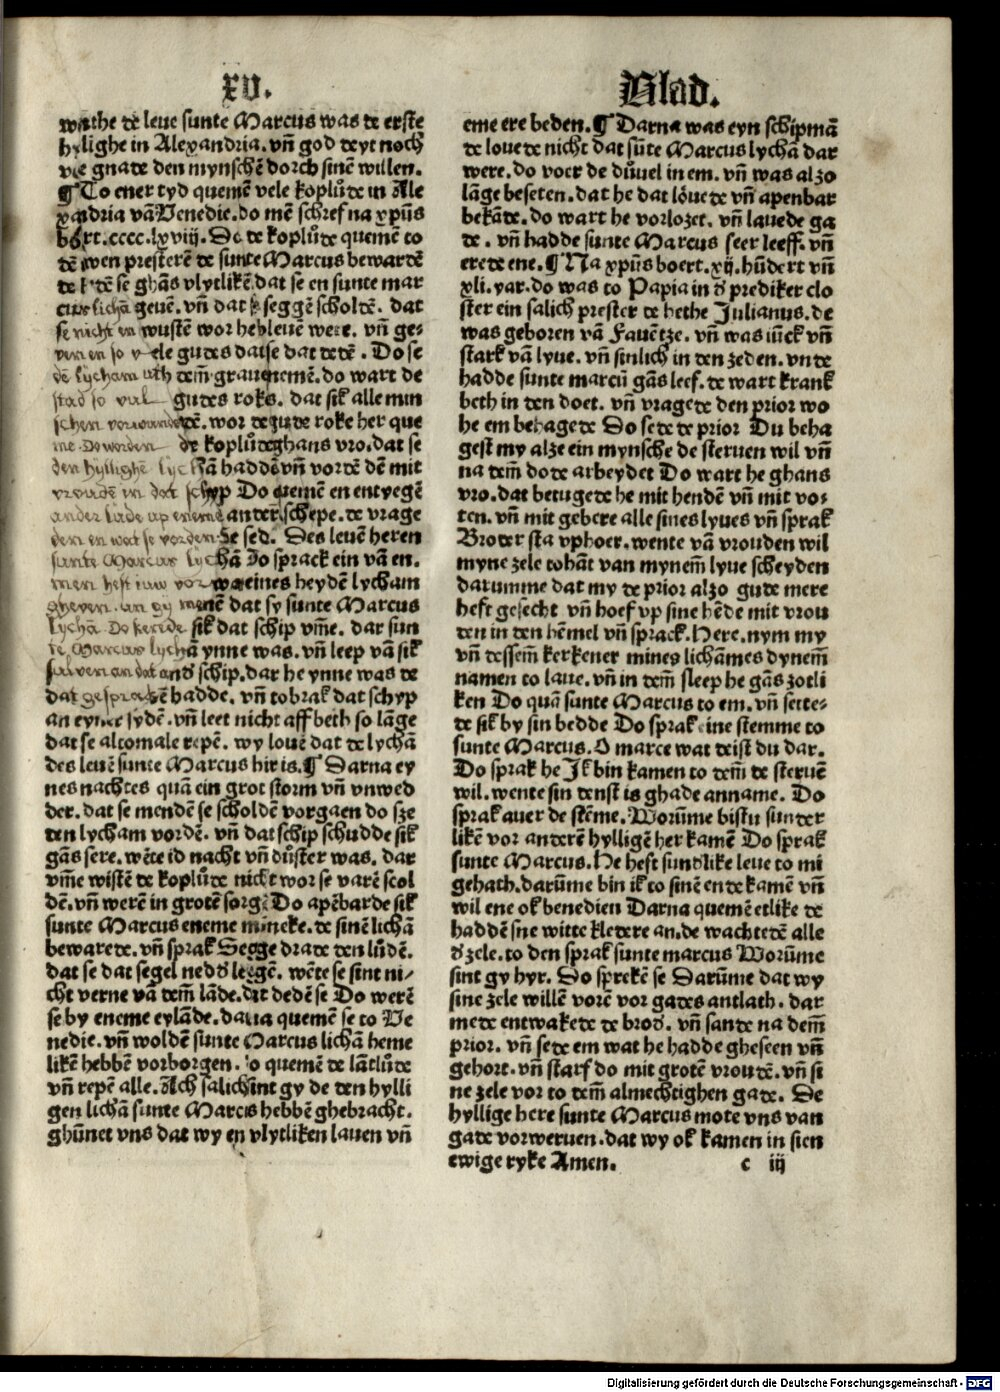 xv.
Blad.
wĩthe de leue sunte Marcus was de erste
hylighe in Alexandria. vñ god deyt noch
vele gnade den mynschẽ dorch sinẽ willen.
¶ To ener tyd quemẽ vele koplůde in Ale
xandria vã Venedie. do mẽ schref na xpũs
bort. cccc. lxviij. Do de koplůde quemẽ to
dẽ twen presterẽ de sunte Marcus bewardẽ
de bedẽ se ghãs vlytlikẽ dat se en sunte mar
cus lichã geuẽ. vñ dat se seggẽ scholdẽ. dat
se nicht en wustẽ wor he bleuẽ were. vñ ge-
ven en so vele gudes dat se dat dedẽ. Do se
dẽ lycham uth dem̃ graue nemẽ. do wart de
stad so vul gudes roks. dat sik alle min
schen vorwunderdẽ. wor de gude roke her que
me. Do worden de koplůde ghans vro. dat se
den hyllighẽ lychã haddẽ vñ vordẽ dẽ mit
vroudẽ in dat schyp Do quemẽ en entyegẽ
ander lude up eneme anderẽ schepe. de vrage
den en wat se vorden. Se sed. Des leuẽ heren
sunte Marcus lychã Do sprack ein vã en.
men heft iuw vorwar eines heydẽ lycham
gheven. un gy menẽ dat sy sunte Marcus
lychã. Do kerede sik dat schip vm̃e. dar sun
te Marcus lychã ynne was. vñ leep vã sik
suluen an dat and͛ schip. dar he ynne was de
dat gesprakẽ hadde. vñ tobrak dat schyp
an eyner sydẽ. vñ leet nicht aff beth so lãge
dat se altomale repẽ. wy louẽ dat de lychã
des leuẽ sunte Marcus hir is. ¶ Darna ey
nes nachtes quã ein grot storm vñ vnwed
der. dat se mendẽ se scholdẽ vorgaen do sze
den lycham vordẽ. vñ dat schip schudde sik
gãs sere. wẽte id nacht vñ důster was. dar
vm̃e wistẽ de koplůde nicht wor se varẽ scol
dẽ. vñ werẽ in grotẽ sorgẽ Do apẽbarde sik
sunte Marcus eneme mõneke. de sinẽ lichã
bewarede. vñ sprak Segge drade den lůdẽ.
dat se dat segel ned͛ leggẽ. wẽte se sint ni-
cht verne vã dem̃ lãde. dit dedẽ se Do werẽ
se by eneme eylãde. darna quemẽ se to Ve
nedie. vñ woldẽ sunte Marcus lichã heme
likẽ hebbẽ vorborgen. Do quemẽ de lãtlůde
vñ repẽ alle. Ach salich sint gy de den hylli
gen lichã sunte Marcus hebbẽ ghebracht.
ghũnet vns dat wy en vlytliken lauen vñ
eme ere beden. ¶ Darna was eyn schipmã
de louede nicht dat sũte Marcus lychã dar
were. do voer de důuel in em. vñ was alzo
lãge beseten. dat he dat lõuede vñ apenbar
bekãde. do wart he vorlozet. vñ lauede ga
de. vñ hadde sunte Marcus seer leeff. vñ
erede ene. ¶ Na xpũs boert. xij. hũdert vñ
xli. yar. do was to Papia in d͛ prediker clo
ster ein salich prester de hethe Julianus. de
was geboren vã Fauẽtze. vñ was iũck vñ
stark vã lyue. vñ sinlich in den zeden. vnde
hadde sunte marcũ gãs leef. de wart krank
beth in den doet. vñ vragede den prior wo
he em behagede Do sede de prior Du beha
gest my alze ein mynsche de steruen wil vñ
na dem̃ dode arbeydet Do wart he ghans
vro. dat betugede he mit hendẽ vñ mit vo-
ten. vñ mit gebere alle sines lyues vñ sprak
Broder sta vp hoer. wente vã vrouden wil
myne zele tohãt van mynem̃ lyue scheyden
darumme dat my de prior alzo gude mere
heft gesecht vñ hoef vp sine hẽde mit vrou
den in den hẽmel vñ sprack. Here. nym my
vñ dessem̃ kerkener mines lichãmes dynem̃
namen to laue. vñ in dem̃ sleep he gãs zotli
ken Do quã sunte Marcus to em. vñ sette-
de sik by sin bedde Do sprak eine stemme to
sunte Marcus. O marce wat deist du dar.
Do sprak he Ik bin kamen to dem̃ de steruẽ
wil. wente sin denst is ghade anname. Do
sprak auer de stẽme. Worũme bistu sunder
likẽ vor anderẽ hylligẽ her kamẽ Do sprak
sunte Marcus. He heft sund͛like leue to mi
gehath. darũme bin ik to sinẽ ende kamẽ vñ
wil ene ok benedien Darna quemẽ etlike de
haddẽ sne witte kledere an. de wachtedẽ alle
d͛ zele. to den sprak sunte marcus Worũme
sint gy hyr. Do sprekẽ se Darũme dat wy
sine zele willẽ vorẽ vor gades antlath. dar
mede entwakede de brod͛. vñ sande na dem̃
prior. vñ sede em wat he hadde gheseen vñ
gehort. vñ starf do mit grotẽ vroudẽ. vñ si
ne zele vor to dem̃ almechtighen gade. De
hyllige here sunte Marcus mote vns van
gade vorweruen. dat wy ok kamen in sien
ewige ryke Amen.
c iij
Digitalisierung gefördert durch die Deutsche Forschungsgemeinschaft - DFG